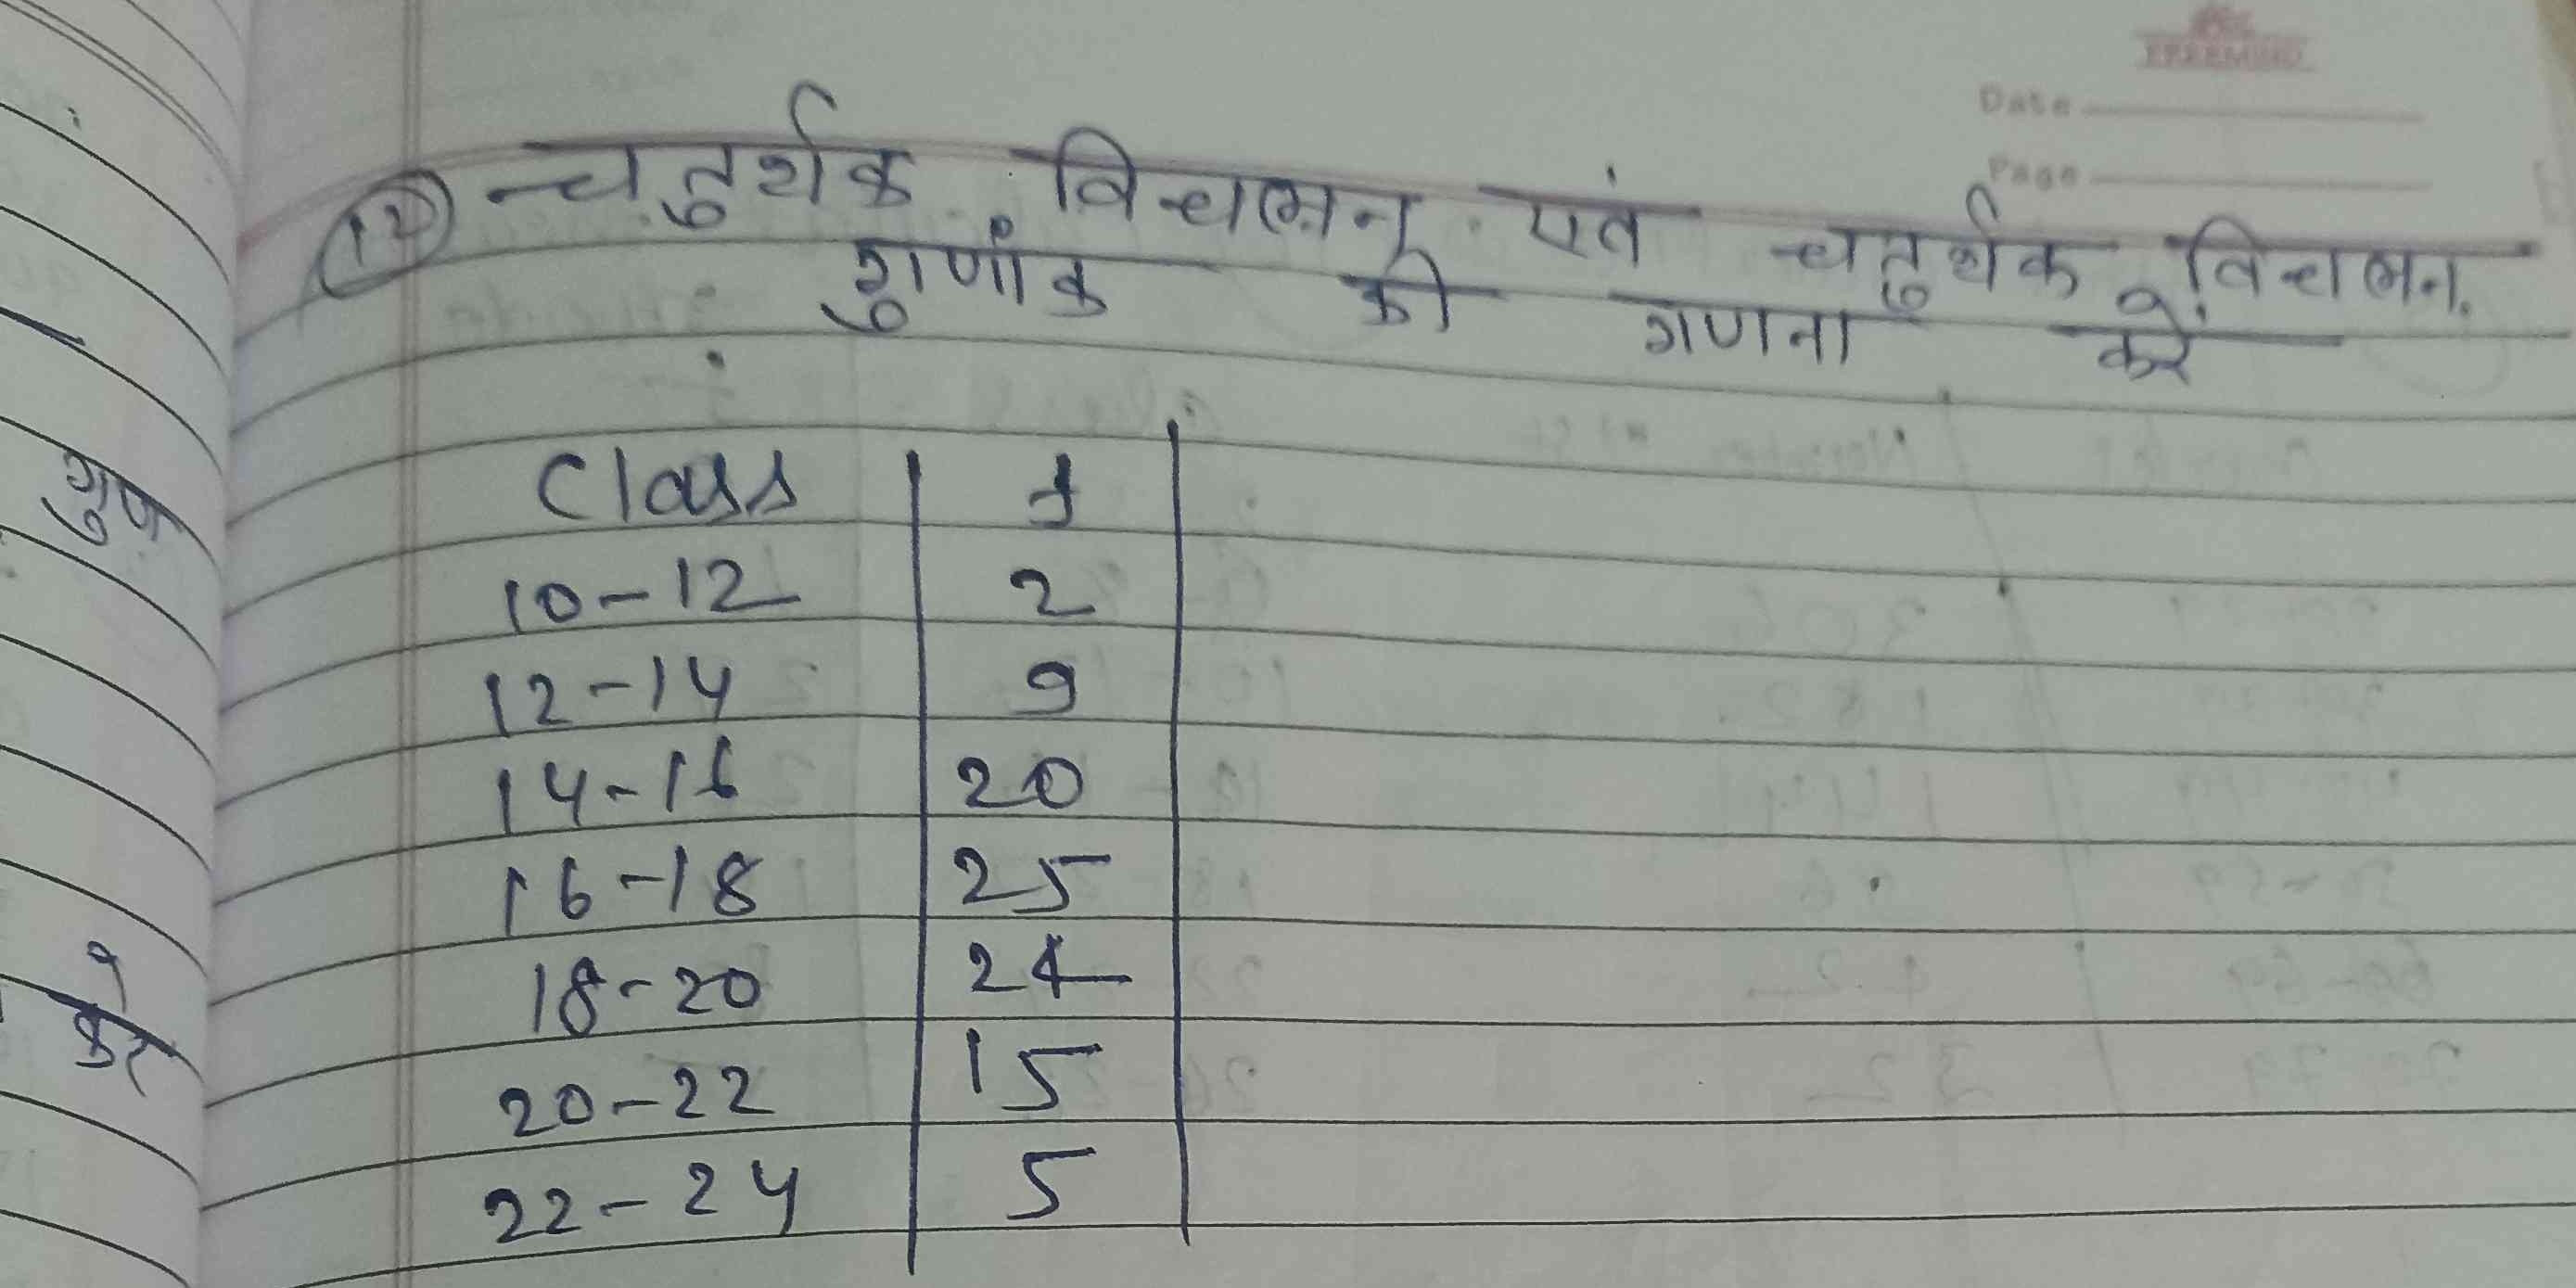 Date
Page
(12) चतुर्थक विचलन एवं चतुर्थक विचलन
गुणांक की गणना करें
Class f
10-12 2
12-14 9
14-16 20
16-18 25
18-20 24
20-22 15
22-24 5
गुण
करे